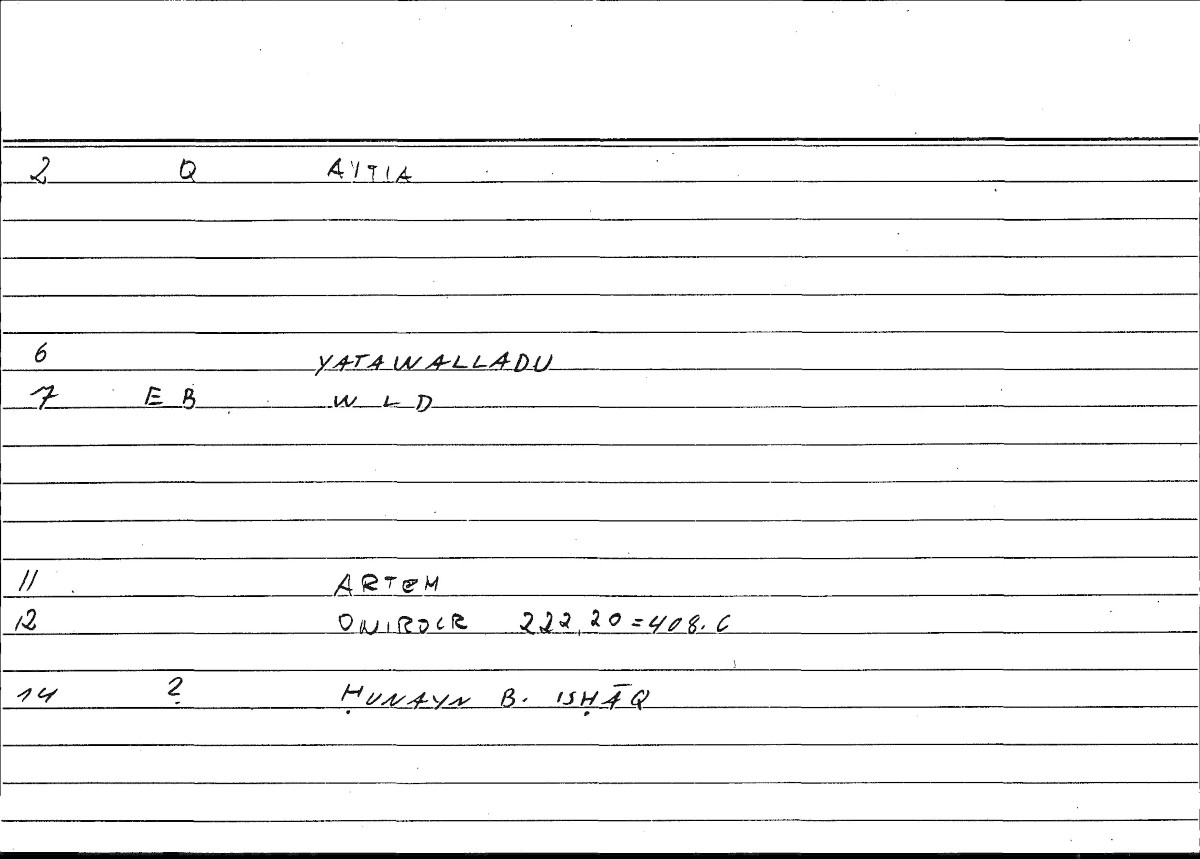 2 Q AYTIA
6 YATAWALLADU
7 E B W L D
11 ARTEM
12 ONIROCR 222,20=408.6
14 ? ḤUNAYN B. ISḤĀQ